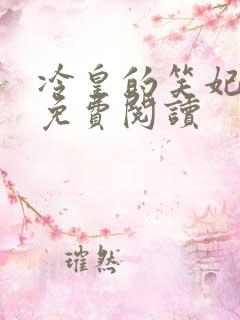 冷皇的笑妃
免費閱讀
璀然